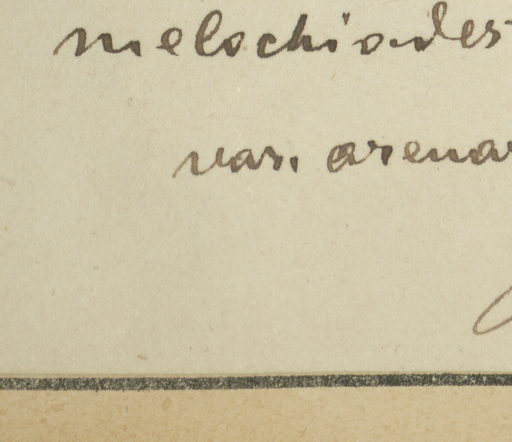 melochioides
var. arenar